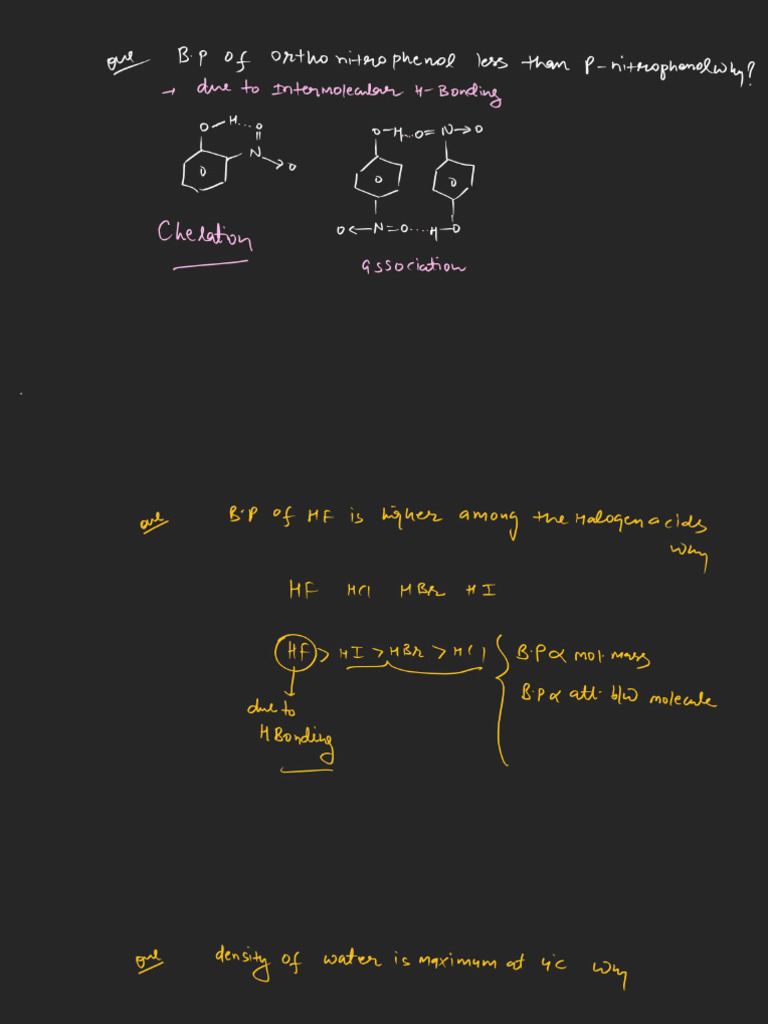 Que B.P of orthonitrophenol less than P-nitrophenol why?
→ due to Intermolecular H-Bonding
O-H...O
N→O
O-H...O=N→O
O←N=O....H-O
Chelation
association
Que B.P of HF is higher among the Halogen acids
why
HF HCl HBr HI
HF > HI > HBr > HCl
B.P ∝ mol. mass
B.P ∝ att. b/w molecule
due to
H Bonding
Que density of water is maximum at 4°c why